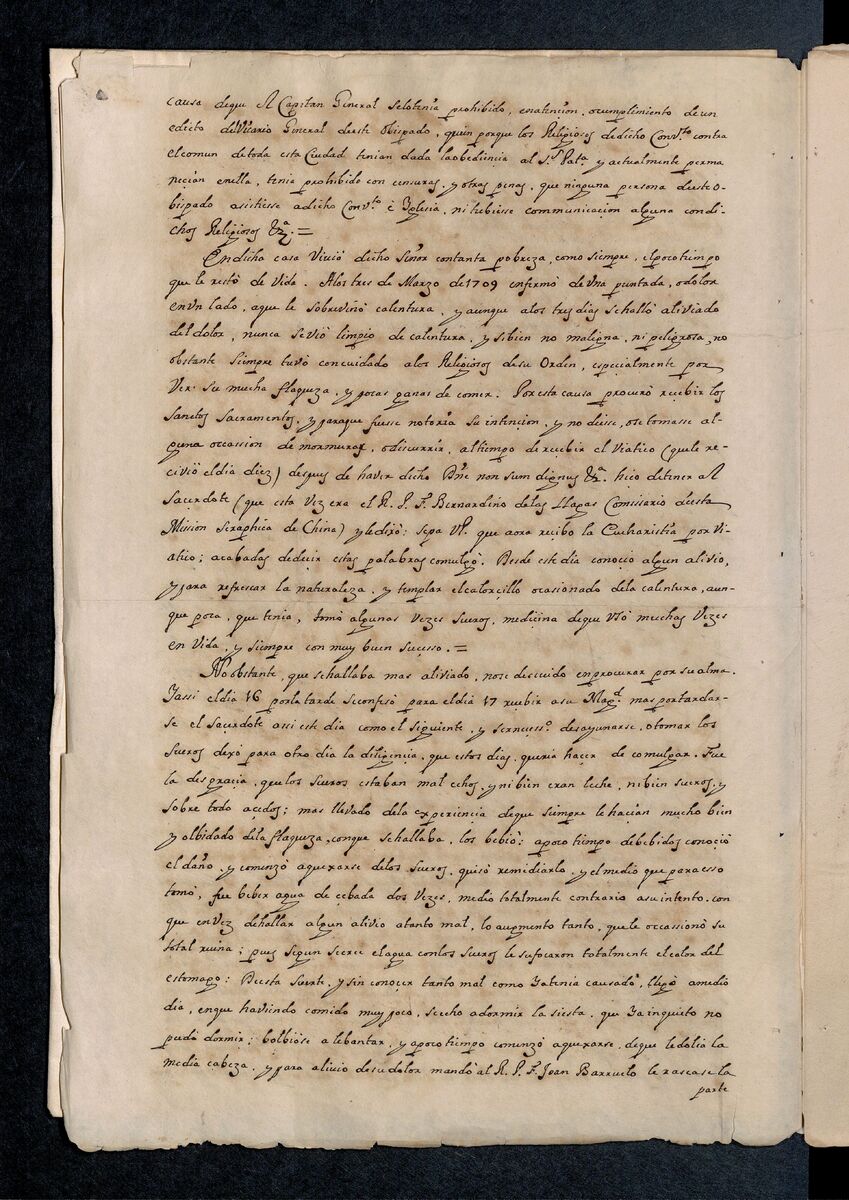 causa deque el Capitan General selotenia prohibido, enatencion, ocumplimiento de un
edicto del Vicario General deeste Obispado, quien porque los Religiosos de dicho Conv.to contra
el comun de toda esta Ciudad tenian dada la obediencia al S.r Pat.a y actualmente perma
necian enella, tenia prohibido con censuras, y otras penas, que ninguna persona deeste O-
bispado asistiesse adicho Conv.to è Yglesia, ni tubiesse communicacion alguna con di-
chos Religiosos &.a =
En dicha casa Viviò dicho Señor contanta pobreza, como siempre, elpocotiempo
que le restò de Vida. Alos tres de Marzo de 1709 enfermò de Una puntada, odolor
en Un lado, aque le sobrevino calentura, y aunque alos tres dias sehallò aliviado
del dolor, nunca seviò limpio de calentura, y sibien no maligna, ni peligrosa, no
obstante siempre tuvò concuidado alos Religiosos desu Orden, especialmente por
Ver su mucha flaqueza, y pocas ganas de comer. Por esta causa procurò recebir los
Sanctos Sacramentos, y paraque fuesse notoria su intencion, y no diesse, ose tomasse al-
guna occassion de mormurar, odiscurrir, altiempo de recebir el Viatico (que le re-
civiò eldia diez) despues de haver dicho Dñe non sum dignus &.a hiço detener al
Sacerdote (que esta Vez era el R. P. F. Bernardino delas Llagas Comissario desta
Mission Seraphica de China) y ledixò: sepa VP. que aora recibo la Eucharistia por Vi-
atico; acabadas dedecir estas palabras comulgò. Desde este dia conociò algun alivio,
y para refrescar la naturaleza, y templar elcalorcillo ocasionado dela calentura, aun-
que poca, que tenia, tomò algunas Vezes sueros, medicina deque Usò muchas Vezes
en Vida, y siempre con muy buen sucesso. =
No obstante, que sehallaba mas aliviado, nose descuidò enprocurar por su alma.
Yassi eldia 16 porla tarde seconfesò para eldia 17 recebir a su Mag.d mas portardar-
se el Sacerdote assi este dia como el siguiente, y ser necess.o desayunarse, otomar los
Sueros dexò para otro dia la diligencia, que estos dias queria hacer de comulgar. Fue
la desgracia, que los sueros estaban mal echos, y ni bien eran leche, ni bien sueros, y
sobre todo acedos; mas llevado dela experiencia deque siempre le hacian mucho bien
y olbidado dela flaqueza, conque sehallaba, los bebiò: apoco tiempo debebidos conociò
el daño, y comenzò aquexarse delos sueros, quisò remediarlo, y el medio que para esso
tomò, fue beber agua de cebada dos Vezes, medio totalmente contrario asu intento, con
que en Vez de hallar algun alivio atanto mal, lo augmento tanto, que le occassionò su
total ruina; pues segun secree el agua conlos sueros le sufocaron totalmente el calor del
estomago: Deesta suerte, y sin conocer tanto mal como Ya tenia causado, llegò amedio
dia, enque haviendo comido muy poco, se echo adormir la siesta, que Ya inquieto no
pudò dormir; bolbiòse alebantar, y apoco tiempo comenzò aquexarse, deque ledolia la
media cabeza, y para alivio desu dolor mandò al R. P. F. Joan Barruelo le rascasse la
parte